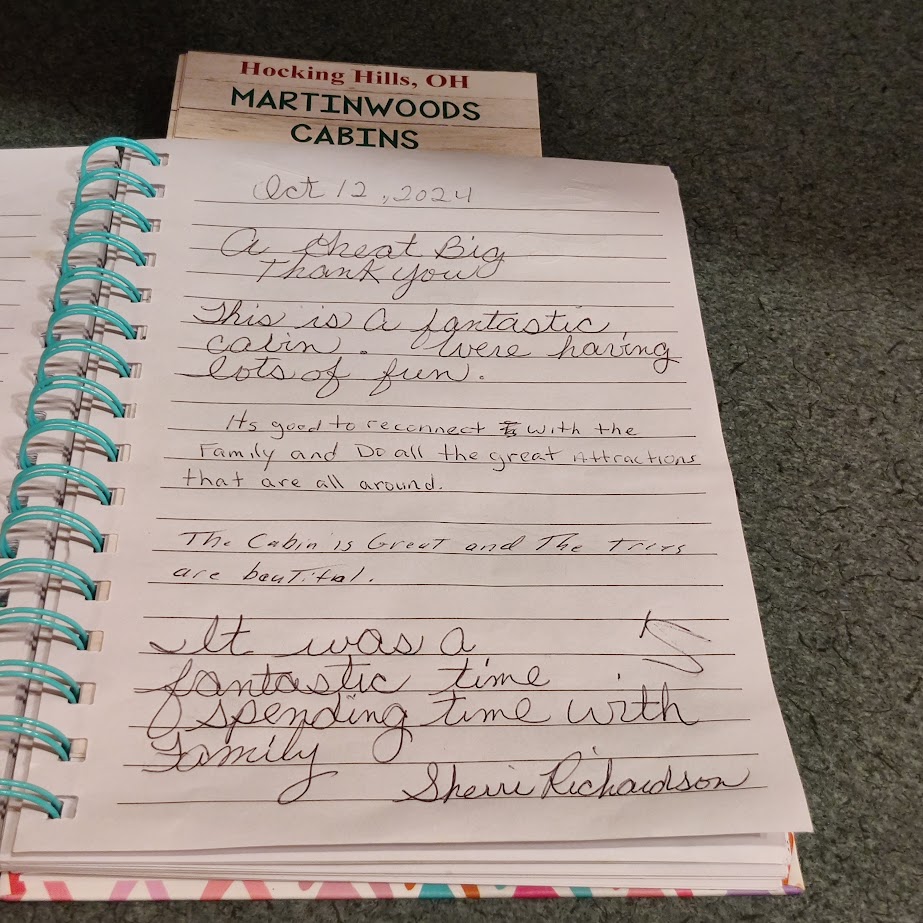 Hocking Hills, OH
MARTINWOODS
CABINS
Oct 12, 2024
A Great Big
Thank you
This is a fantastic
cabin. Were having
lots of fun.
Its good to reconnect with the
Family and Do all the great Attractions
that are all around.
The Cabin is Great and The Trees
are beautiful.
It was a
fantastic time
spending time with
Family
Sherri Richardson